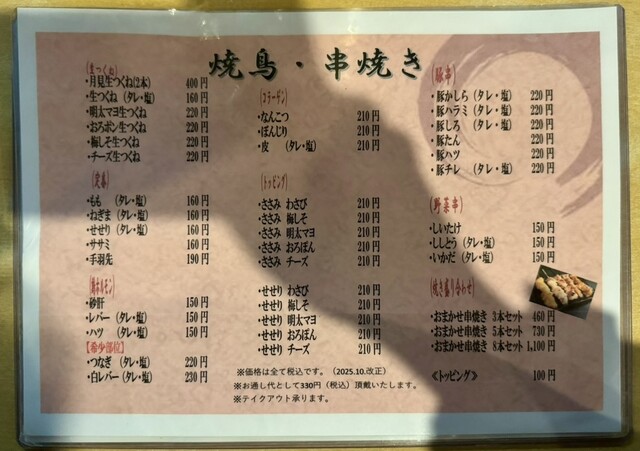 焼鳥・串焼き
(生つくね)
・月見生つくね(2本) 400円
・生つくね (タレ・塩) 160円
・明太マヨ生つくね 220円
・おろポン生つくね 220円
・梅しそ生つくね 220円
・チーズ生つくね 220円
(定番)
・もも (タレ・塩) 160円
・ねぎま (タレ・塩) 160円
・せせり (タレ・塩) 160円
・ササミ 160円
・手羽先 190円
(鶏ホルモン)
・砂肝 150円
・レバー (タレ・塩) 150円
・ハツ (タレ・塩) 150円
【希少部位】
・つなぎ (タレ・塩) 220円
・白レバー (タレ・塩) 230円
(コラーゲン)
・なんこつ 210円
・ぼんじり 210円
・皮 (タレ・塩) 210円
(トッピング)
・ささみ わさび 210円
・ささみ 梅しそ 210円
・ささみ 明太マヨ 210円
・ささみ おろぽん 210円
・ささみ チーズ 210円
・せせり わさび 210円
・せせり 梅しそ 210円
・せせり 明太マヨ 210円
・せせり おろぽん 210円
・せせり チーズ 210円
(豚串)
・豚かしら (タレ・塩) 220円
・豚ハラミ (タレ・塩) 220円
・豚しろ (タレ・塩) 220円
・豚たん 220円
・豚ハツ 220円
・豚チレ (タレ・塩) 220円
(野菜串)
・しいたけ 150円
・ししとう (タレ・塩) 150円
・いかだ (タレ・塩) 150円
(焼き盛り合わせ)
・おまかせ串焼き 3本セット 460円
・おまかせ串焼き 5本セット 730円
・おまかせ串焼き 8本セット 1,100円
≪トッピング≫ 100円
※価格は全て税込です。（2025.10.改正）
※お通し代として330円（税込）頂戴いたします。
※テイクアウト承ります。